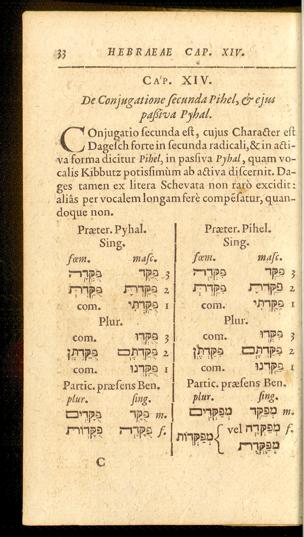 33 HEBRAEAE CAP. XIV.
CAP. XIV.
De Conjugatione secunda Pihel, & ejus
passiva Pyhal.
COnjugatio secunda est, cujus Character est
Dagesch forte in secunda radicali, & in acti-
va forma dicitur Pihel, in passiva Pyhal, quam vo-
calis Kibbutz potissimùm ab activa discernit. Da-
ges tamen ex litera Schevata non rarò excidit:
aliàs per vocalem longam ferè compẽsatur, quan-
doque non.
Præter. Pyhal.
Sing.
fœm. masc.
פֻּקְּדָה פֻּקַּד 3
2
com. פֻּקַּדְתִּי 1
Plur.
com. פֻּקְּדוּ 3
פֻּקַּדְתֶּן פֻּקַּדְתֶּם 2
com. פֻּקַּדְנוּ 1
Partic. præsens Ben.
plur. sing.
פֻּקָּדִים פֻּקָּד m.
פֻּקָּדוֹת פֻּקָּדָה f.
Præter. Pihel.
Sing.
fœm. masc.
פִּקְּדָה פִּקֵּד 3
2
com. פִּקַּדְתִּי 1
Plur.
com. פִּקְּדוּ 3
פִּקַּדְתֶּן פִּקַּדְתֶּם 2
com. פִּקַּדְנוּ 1
Partic. præsens Ben.
plur. sing.
מְפַקְּדִים מְפַקֵּד m.
מְפַקְּדוֹת { vel מְפַקְּדָה f.
מְפַקֶּדֶת
C